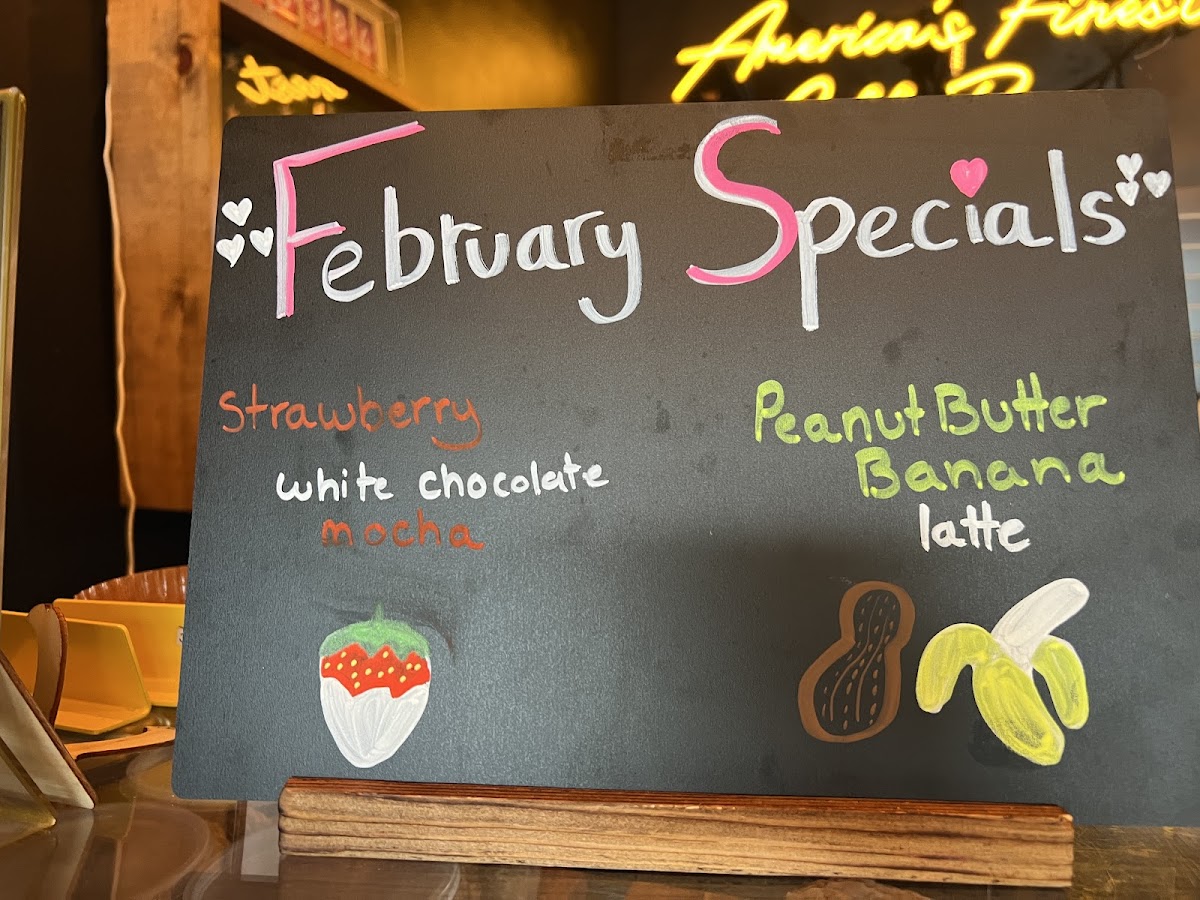 America's Finest
February Specials
Strawberry
white chocolate
mocha
Peanut Butter
Banana
latte